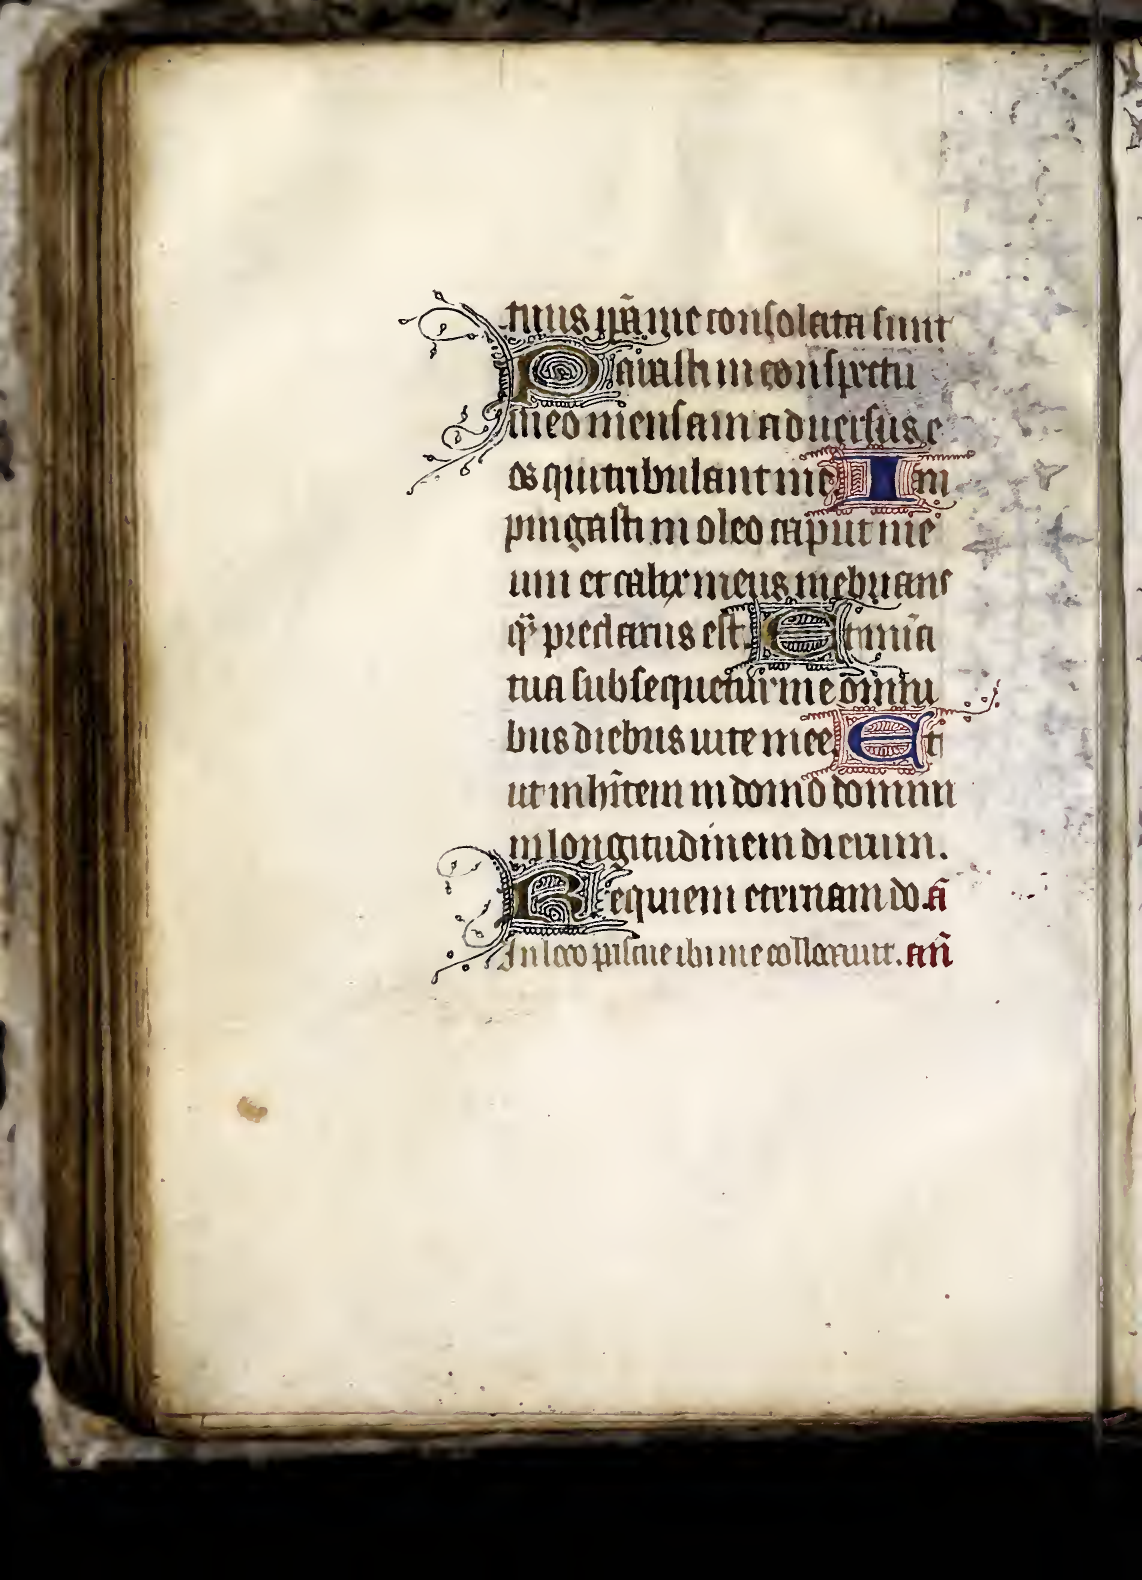 tuus ip̄a me consolata sunt
Parasti in conspectu
meo mensam aduersus e
os qui tribulant me Im
pingasti in oleo caput me
um et calix meus inebrians
q̄ preclarus est Et mīa
tua subsequetur me omni
bus diebus uite mee. Et
ut inhītem in domo domini
in longitudinem dierum.
Requiem eternam do. ā
In loco pascue ibi me collocauit. an̄